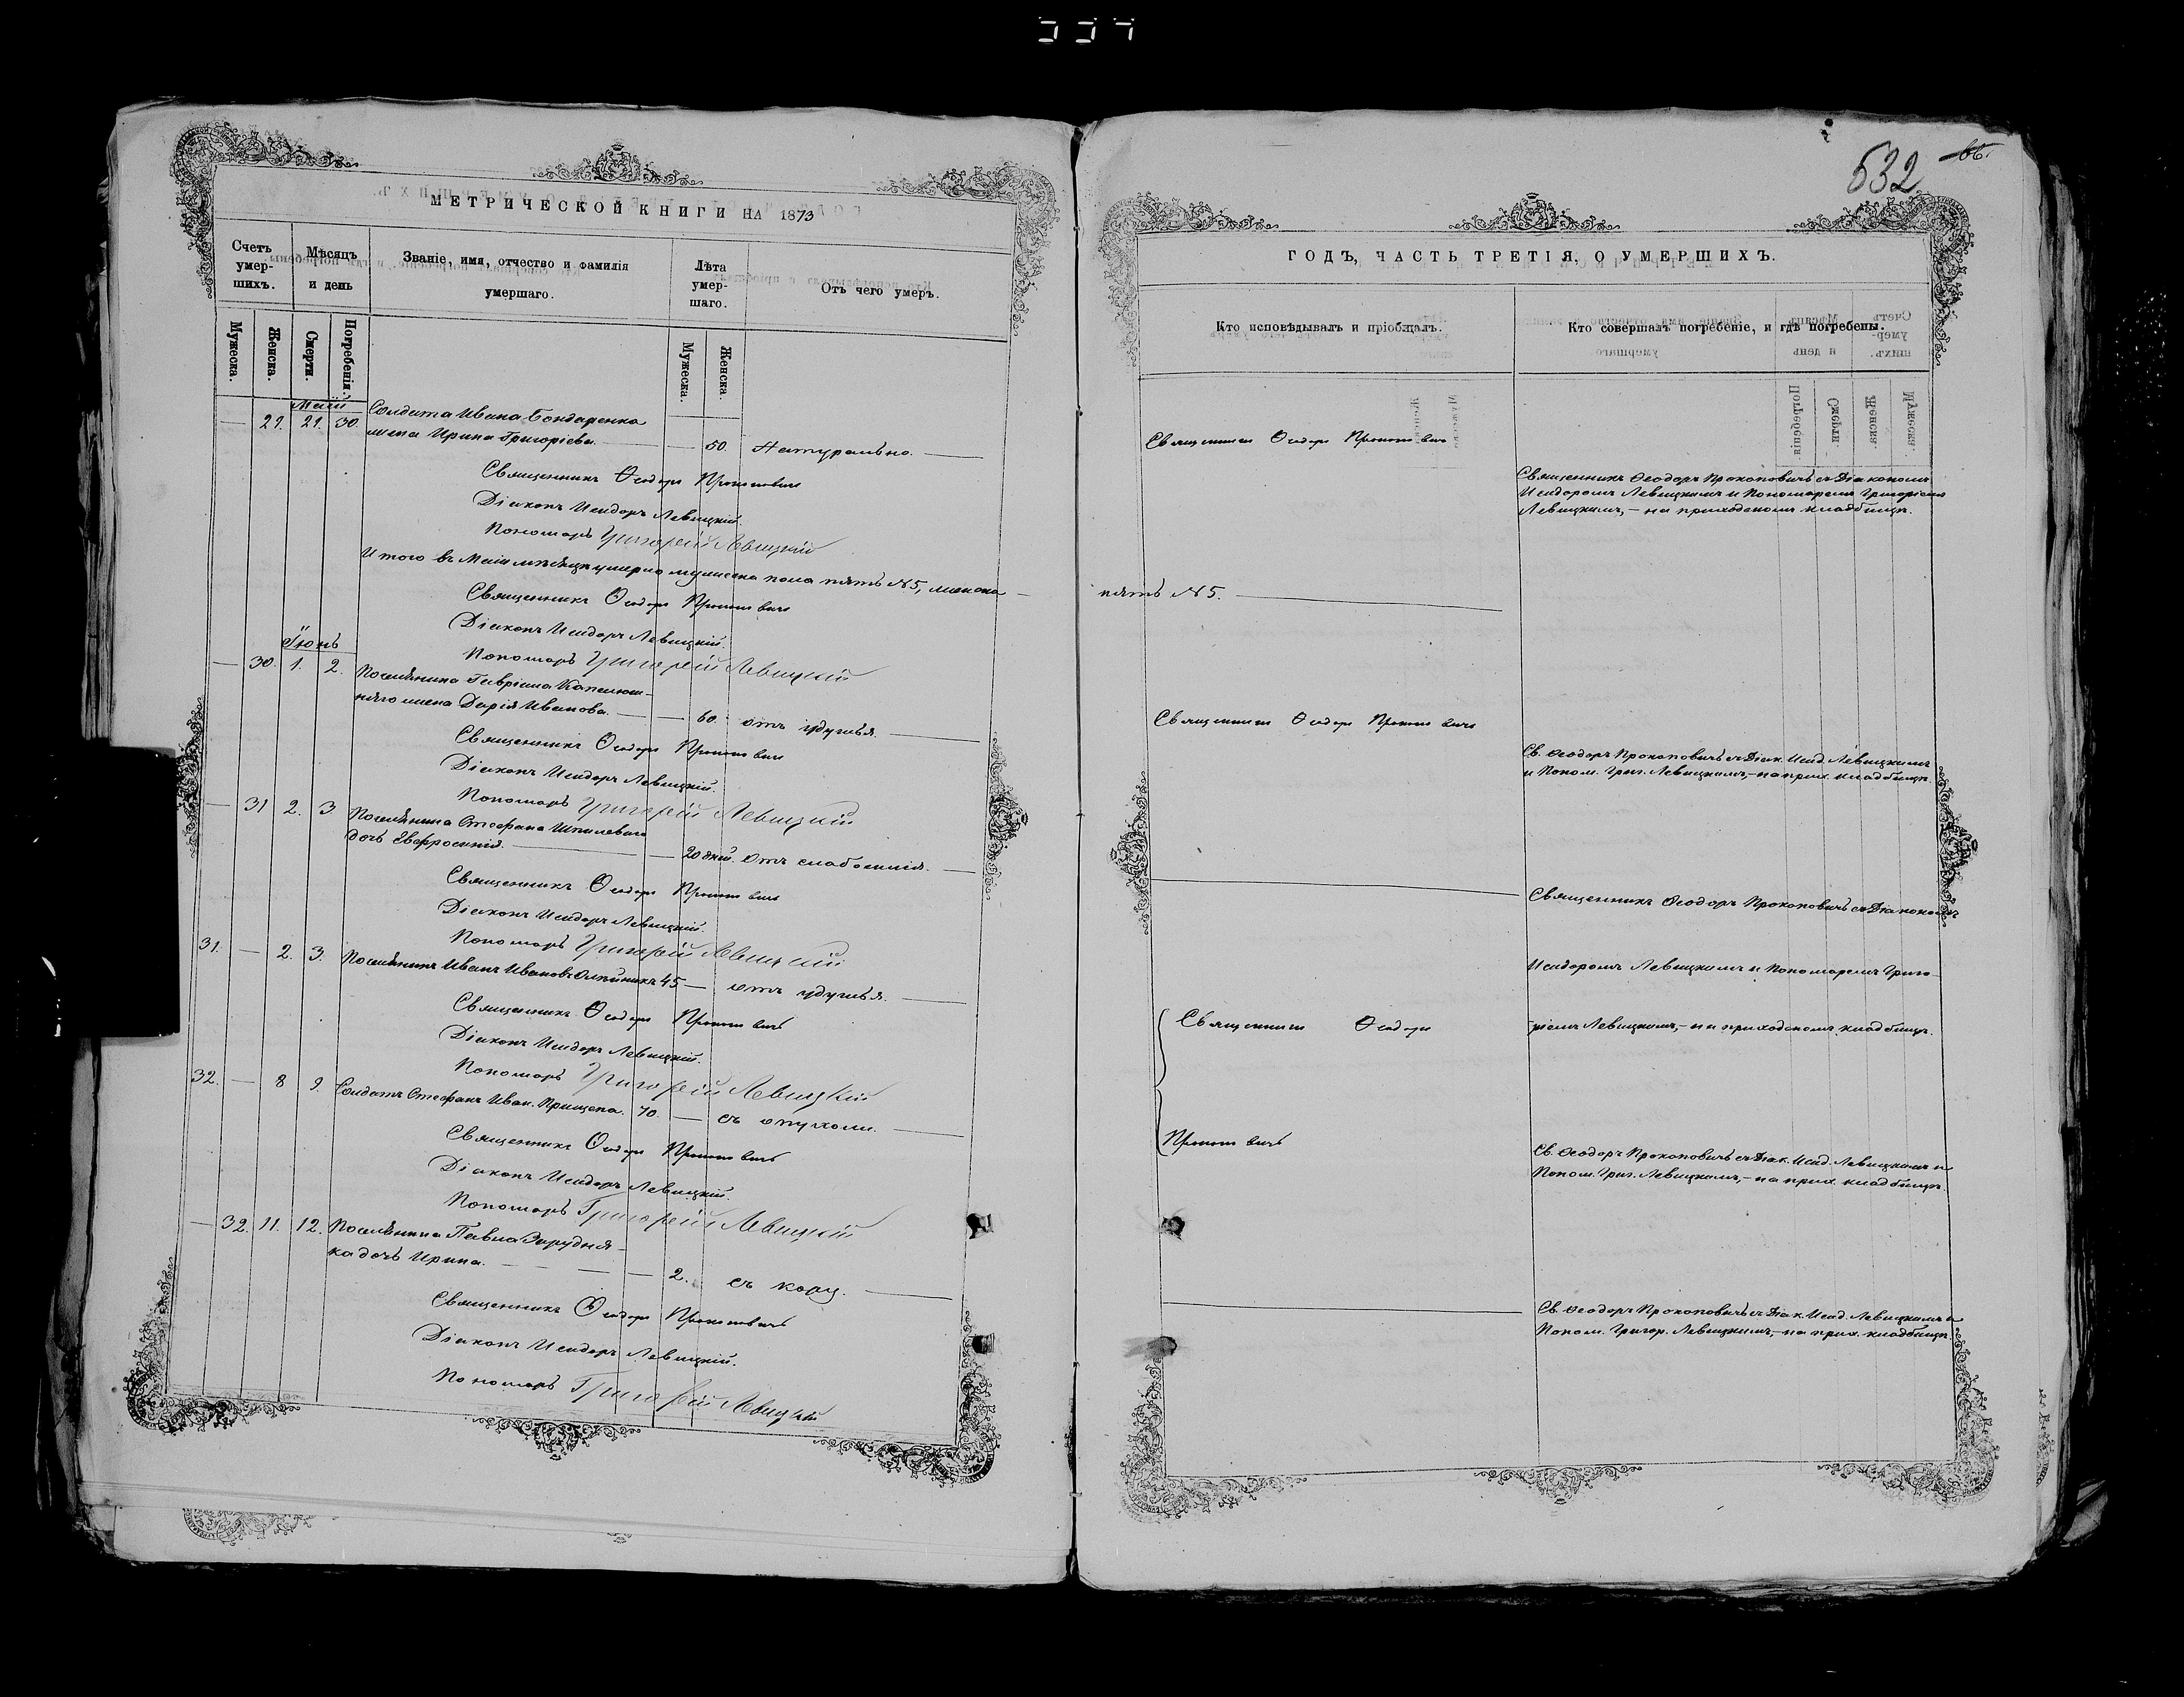 МЕТРИЧЕСКОЙ КНИГИ НА 1873
Счетъ умер-шихъ.
Мѣсяцъ и день
Званіе, имя, отчество и фамилія умершаго.
Лѣта умер-шаго.
Отъ чего умеръ.
Мужеска.
Женска.
Смерти.
Погребенія.
Мужеска.
Женска.
Маій
— 29. 29. 30. Солдата Ивана Бондаренка
жена Ирина Григоріева. — — 50. Натурально. —
Священникъ Ѳеодоръ Прокоповичъ
Діаконъ Исидоръ Левицкій.
Пономарь Григорій Левицкій
Итого въ Маіи мѣсяцѣ умерло мужеска пола пять №5, женска —
Священникъ Ѳеодоръ Прокоповичъ
Діаконъ Исидоръ Левицкій.
Пономарь Григорій Левицкій
Іюнь
— 30. 1. 2. Поселянина Гавріила Капелюш-
няго жена Дарія Иванова. — — 60. отъ удушья. —
Священникъ Ѳеодоръ Прокоповичъ
Діаконъ Исидоръ Левицкій.
Пономарь Григорій Левицкій
— 31 2. 3 Поселянина Стефана Шпилеваго
дочь Евфросинія. — — 20 дней. отъ слабости. —
Священникъ Ѳеодоръ Прокоповичъ
Діаконъ Исидоръ Левицкій.
Пономарь Григорій Левицкій
31. — 2. 3. Поселянинъ Иванъ Ивановъ Олейникъ 45 — отъ удушья. —
Священникъ Ѳеодоръ Прокоповичъ
Діаконъ Исидоръ Левицкій.
Пономарь Григорій Левицкій
32. — 8 9. Солдатъ Стефанъ Иван. Прищепа. 70. — съ опухоли. —
Священникъ Ѳеодоръ Прокоповичъ
Діаконъ Исидоръ Левицкій.
Пономарь Григорій Левицкій
— 32. 11. 12. Поселянина Павла Зарудня-
ка дочь Ирина. — — 2. съ кору. —
Священникъ Ѳеодоръ Прокоповичъ
Діаконъ Исидоръ Левицкій.
Пономарь Григорій Левицкій
532
66.
ГОДЪ, ЧАСТЬ ТРЕТІЯ, О УМЕРШИХЪ.
Кто исповѣдывалъ и пріобщалъ.
Кто совершалъ погребеніе, и гдѣ погребены.
Священникъ Ѳеодоръ Прокоповичъ
Священникъ Ѳеодоръ Прокоповичъ съ Діакономъ
Исидоромъ Левицкимъ и Пономаремъ Григоріемъ
Левицкимъ, – на приходскомъ кладбищѣ.
пять №5. —
Священникъ Ѳеодоръ Прокоповичъ
Св. Ѳеодоръ Прокоповичъ съ Діак. Исид. Левицкимъ
и Поном. Григ. Левицкимъ, – на прих. кладбищѣ.
Священникъ Ѳеодоръ Прокоповичъ съ Діакономъ
Исидоромъ Левицкимъ и Пономаремъ Григо-
Священникъ Ѳеодоръ
ріемъ Левицкимъ, – на приходскомъ кладбищѣ.
Прокоповичъ
Св. Ѳеодоръ Прокоповичъ съ Діак. Исид. Левицкимъ и
Поном. Григ. Левицкимъ, – на прих. кладбищѣ.
Св. Ѳеодоръ Прокоповичъ съ Діак. Исид. Левицкимъ и
Поном. Григор. Левицкимъ, – на прих. кладбищѣ.